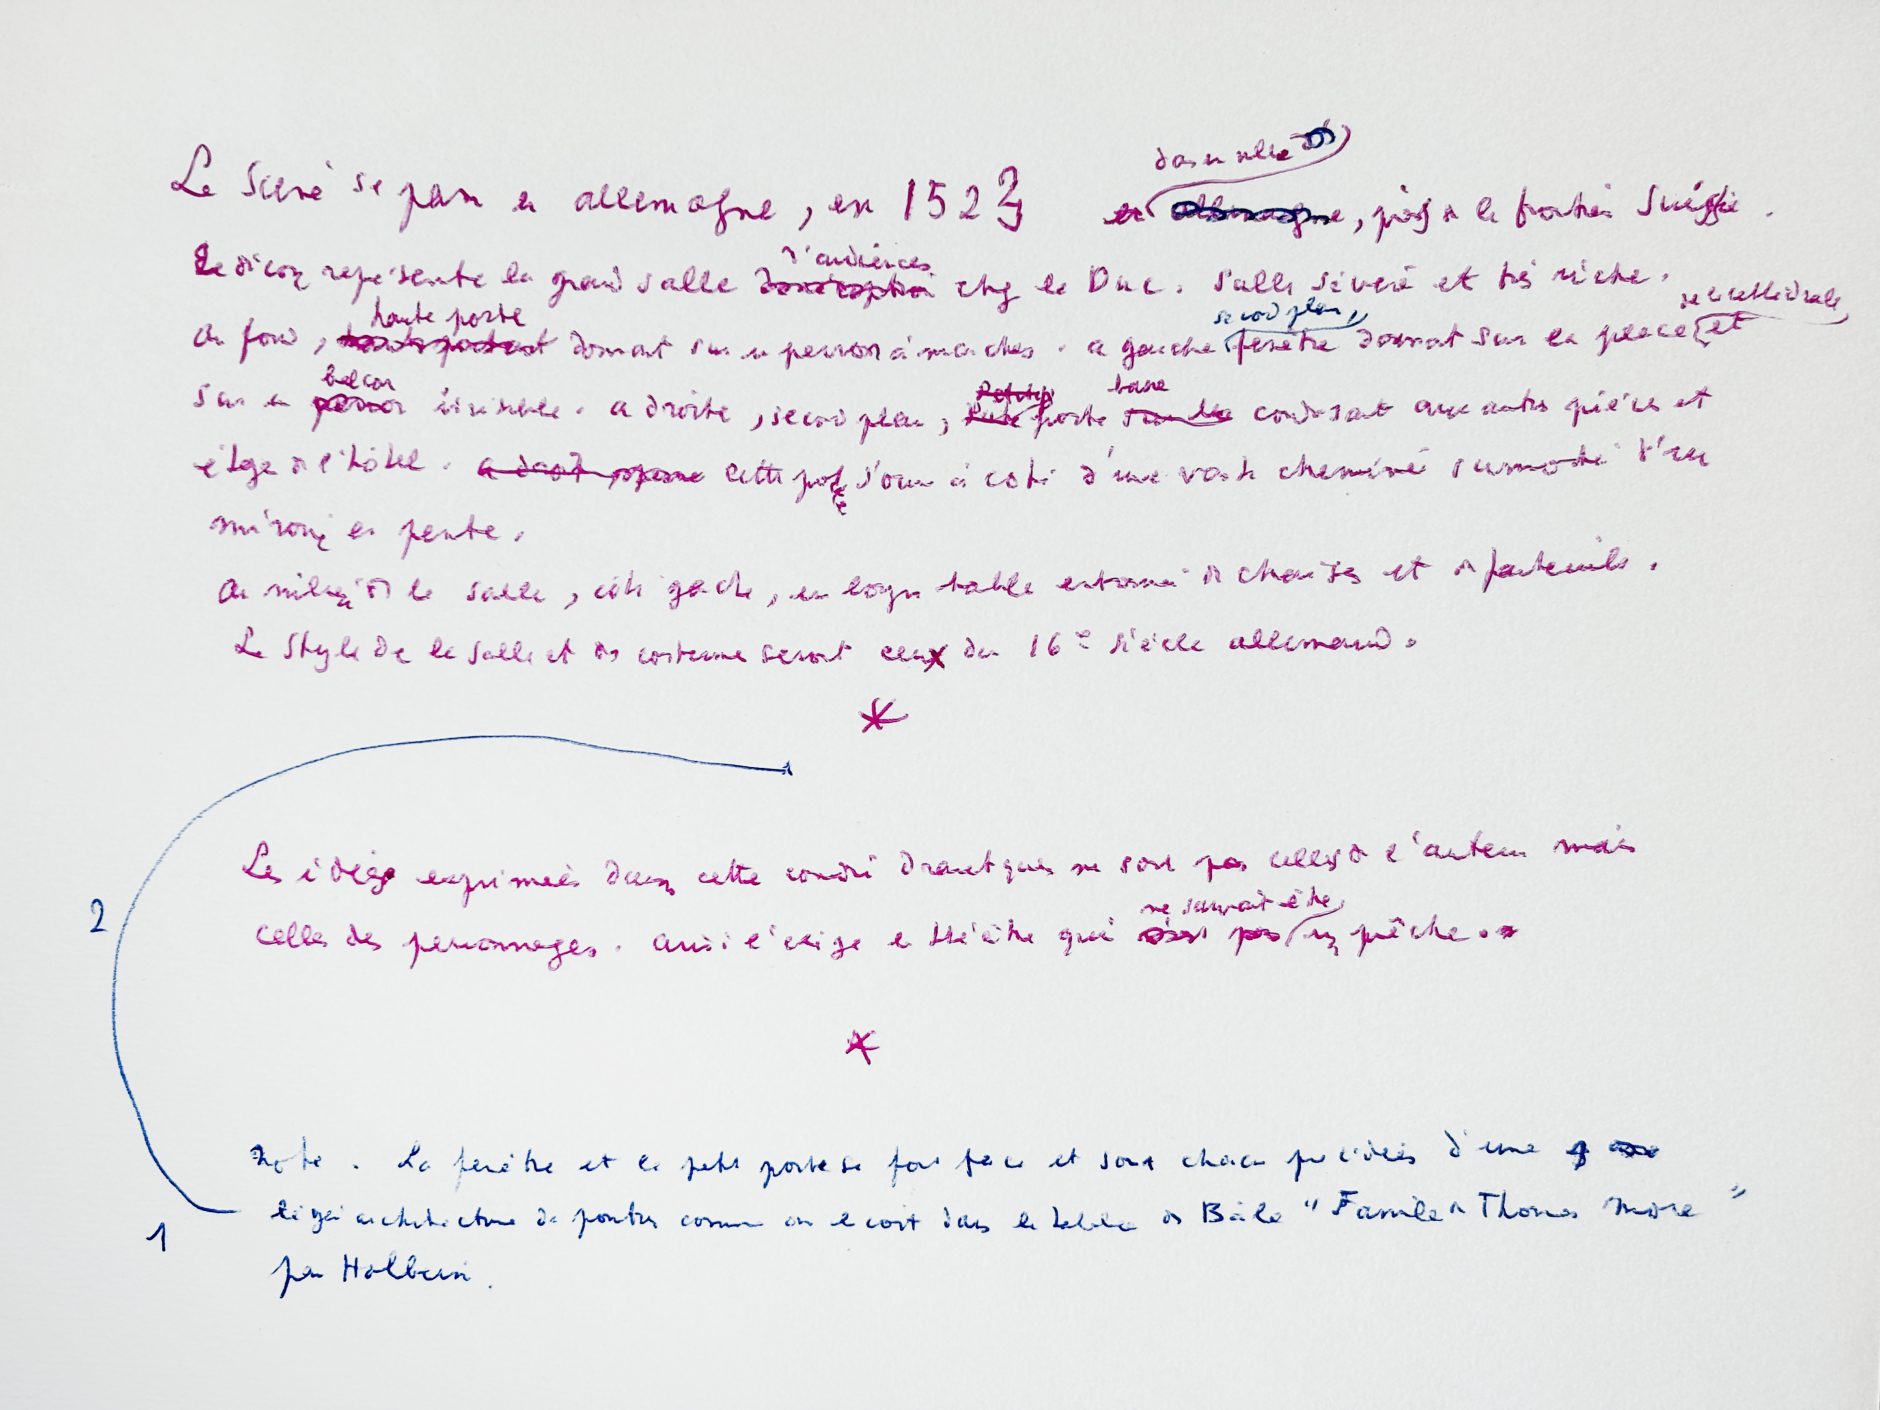 dans une ville
La Scène se passe en allemagne, en 1523 en allemagne, près de la frontière Suisse.
d'audiences
Le décor représente la grande salle de réception chez le Duc. Salle sévère et très riche.
haute porte second plan, de la cathédrale
Au fond, donnant sur un perron à marches. a gauche fenêtre donnant sur la place et
balcon Petite basse
sur un perron invisible. a droite, second plan, porte conduisant aux autres pièces et
étage de l'hôtel. cette porte s'ouvre à côté d'une vaste cheminée surmontée d'un
miroir en pente.
Au milieu de la salle, côté gauche, une longue table entourée de chaises et de fauteuils.
Le style de la salle et des costumes seront ceux du 16e siècle allemand.
*
Les idées exprimées dans cette comédie dramatique ne sont pas celles de l'auteur mais
ne saurait être
celles des personnages. ainsi l'exige le théâtre qui n'est pas un prêche.
*
2
Note. La fenêtre et la petite porte se font face et sont chacune précédées d'une
légère architecture de poutres comme on le voit dans le tableau de Bâle "Famille de Thomas More"
1
par Holbein.